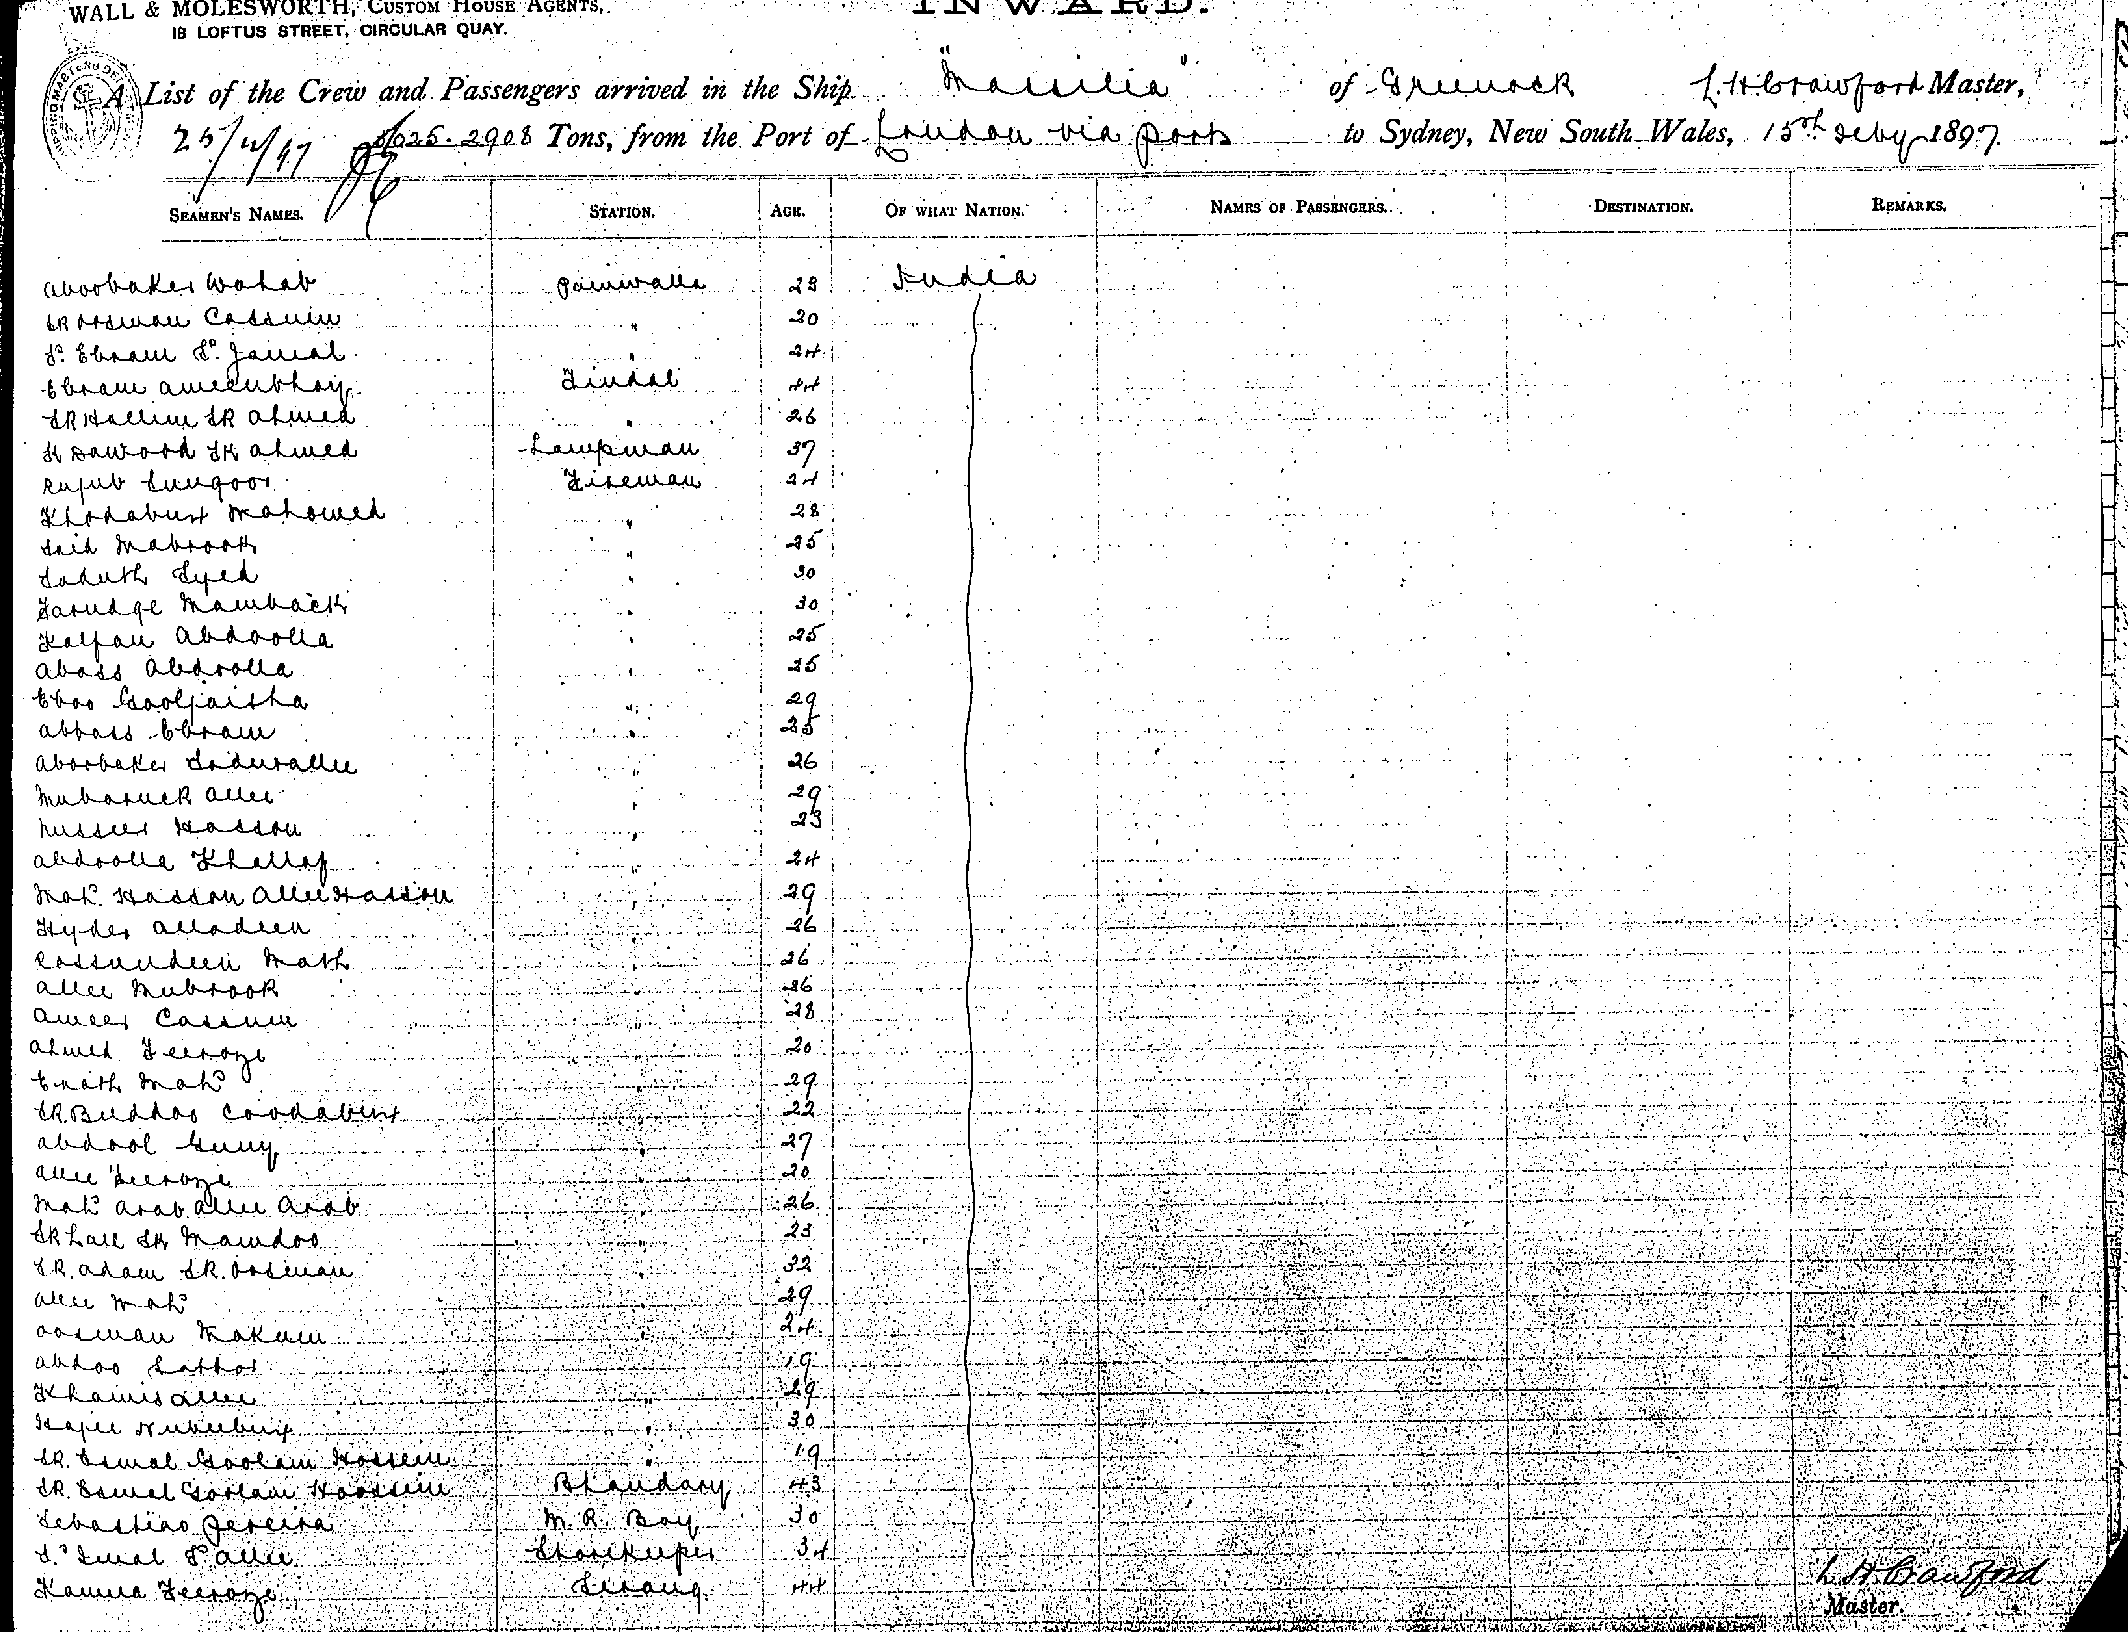 WALL & MOLESWORTH, CUSTOM HOUSE AGENTS,
18 LOFTUS STREET, CIRCULAR QUAY.
INWARD.
A List of the Crew and Passengers arrived in the Ship "Massilia" of Greenock L. H Crawford Master,
2908 Tons, from the Port of London via ports to Sydney, New South Wales, 15th Feby 1897.
SEAMEN'S NAMES. STATION. AGE. OF WHAT NATION. NAMES OF PASSENGERS. DESTINATION. REMARKS.
Aboobaker Wahab Paniwalla 23 India
SK Oosman Cassum " 20
Sd. Ebram Sd. Jamal " 24
Ebram Ameenbhoy Tindal 44
SK Hallim SK Ahmed " 26
SK Dawood SK Ahmed Lampman 37
Rujub Sungoor Fireman 24
Khodabux Mahomed " 28
Said Mabrook " 25
Saduth Syed " 30
Farudge Mamback " 30
Kalfan Abdoolla " 25
Abass Abdoolla " 25
Eboo Goolpaisha " 29
Abbass Ebram " 25
Aboobaker " 26
Mubaruck Allee " 29
Nusseer Hasson " 23
Abdoolla Khallaf " 24
Mahd. Hasson Allee Hasson " 29
Hyder Alladeen " 26
Cassumdeen Math " 26
Allee Mubrook " 26
Ameer Cassum " 28
Ahmed Feeroze " 20
Enath Mahd " 29
SK. Buddoo Coodabux " 22
Abdool Guny " 27
Allee Feeroze " 20
Mahd Arab Allee Arab " 26
SK Lall SK Mamdoo " 23
SK. Adam SK. Oosman " 32
Allee Mahd " 29
Oosman Makum " 24
Abdoo Sattar " 19
Khamis Allee " 29
Hajee Nubeebux " 30
SK. Esmal Goolam Hossein " 19
SK. Esmal Goolam Hoossein Bhandary 43
Sebastiao Pereira M. R. Boy 30
Sd Smal Sd Allee Storekeeper 34
Kamna Feeroze Serang 44
L. H. Crawford
Master.